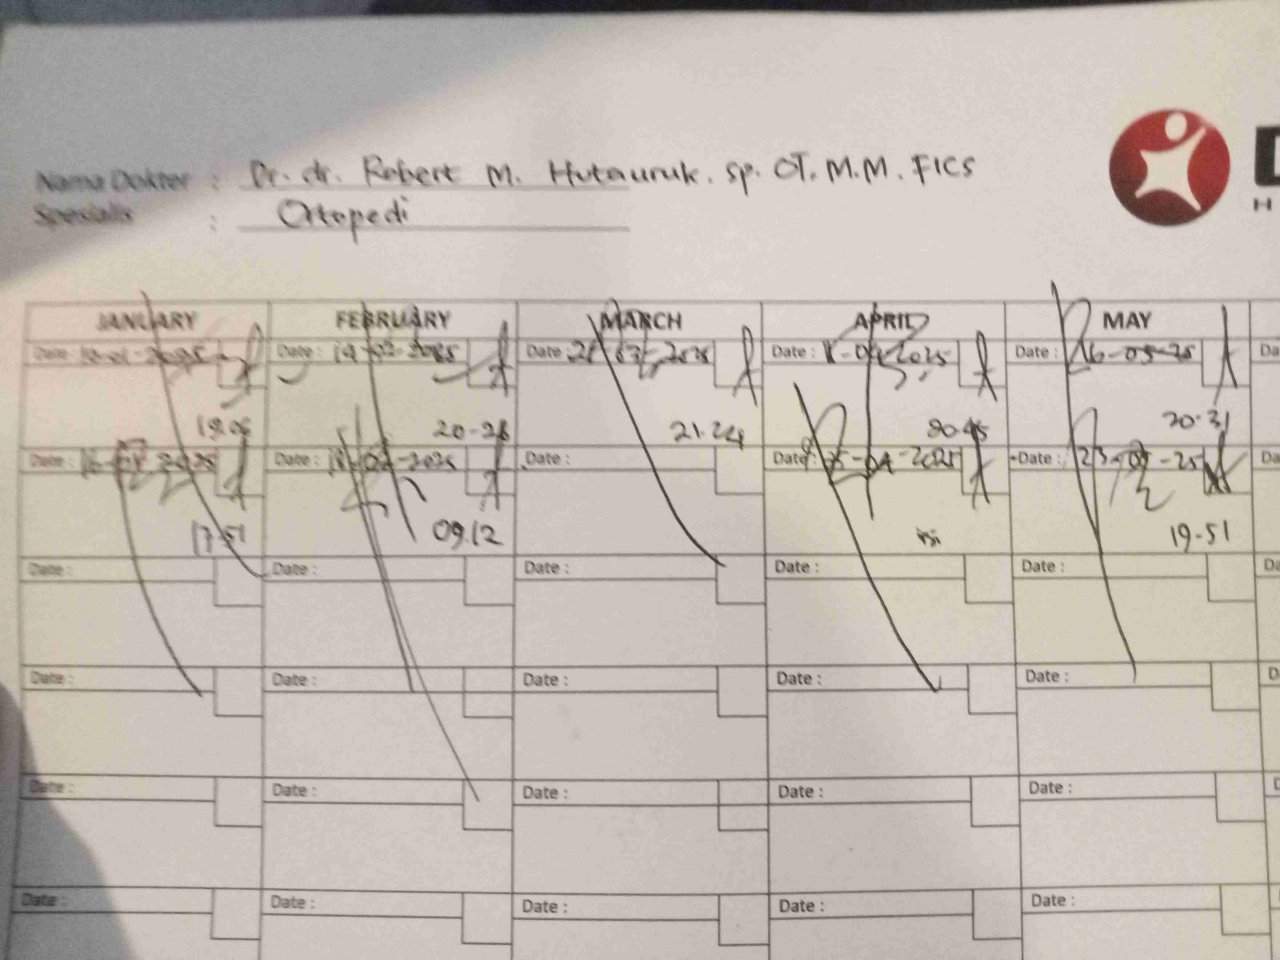 Nama Dokter : Dr. dr. Robert M. Hutauruk. Sp. OT. M.M. FICS
Spesialis : Ortopedi
H
JANUARY FEBRUARY MARCH APRIL MAY
Date : Date : 14-02-2025 Date : Date : Date : 16-05-25 Da
19.06 20-28 21.24 20.45 20.31
Date : Date : 18-02-2025 Date : Date : 25-04-2025 Date : 23-05-25 Da
17.51 09.12 19.51
Date : Date : Date : Date : Date : Da
Date : Date : Date : Date : Date : D
Date : Date : Date : Date : Date :
Date : Date : Date : Date : Date :